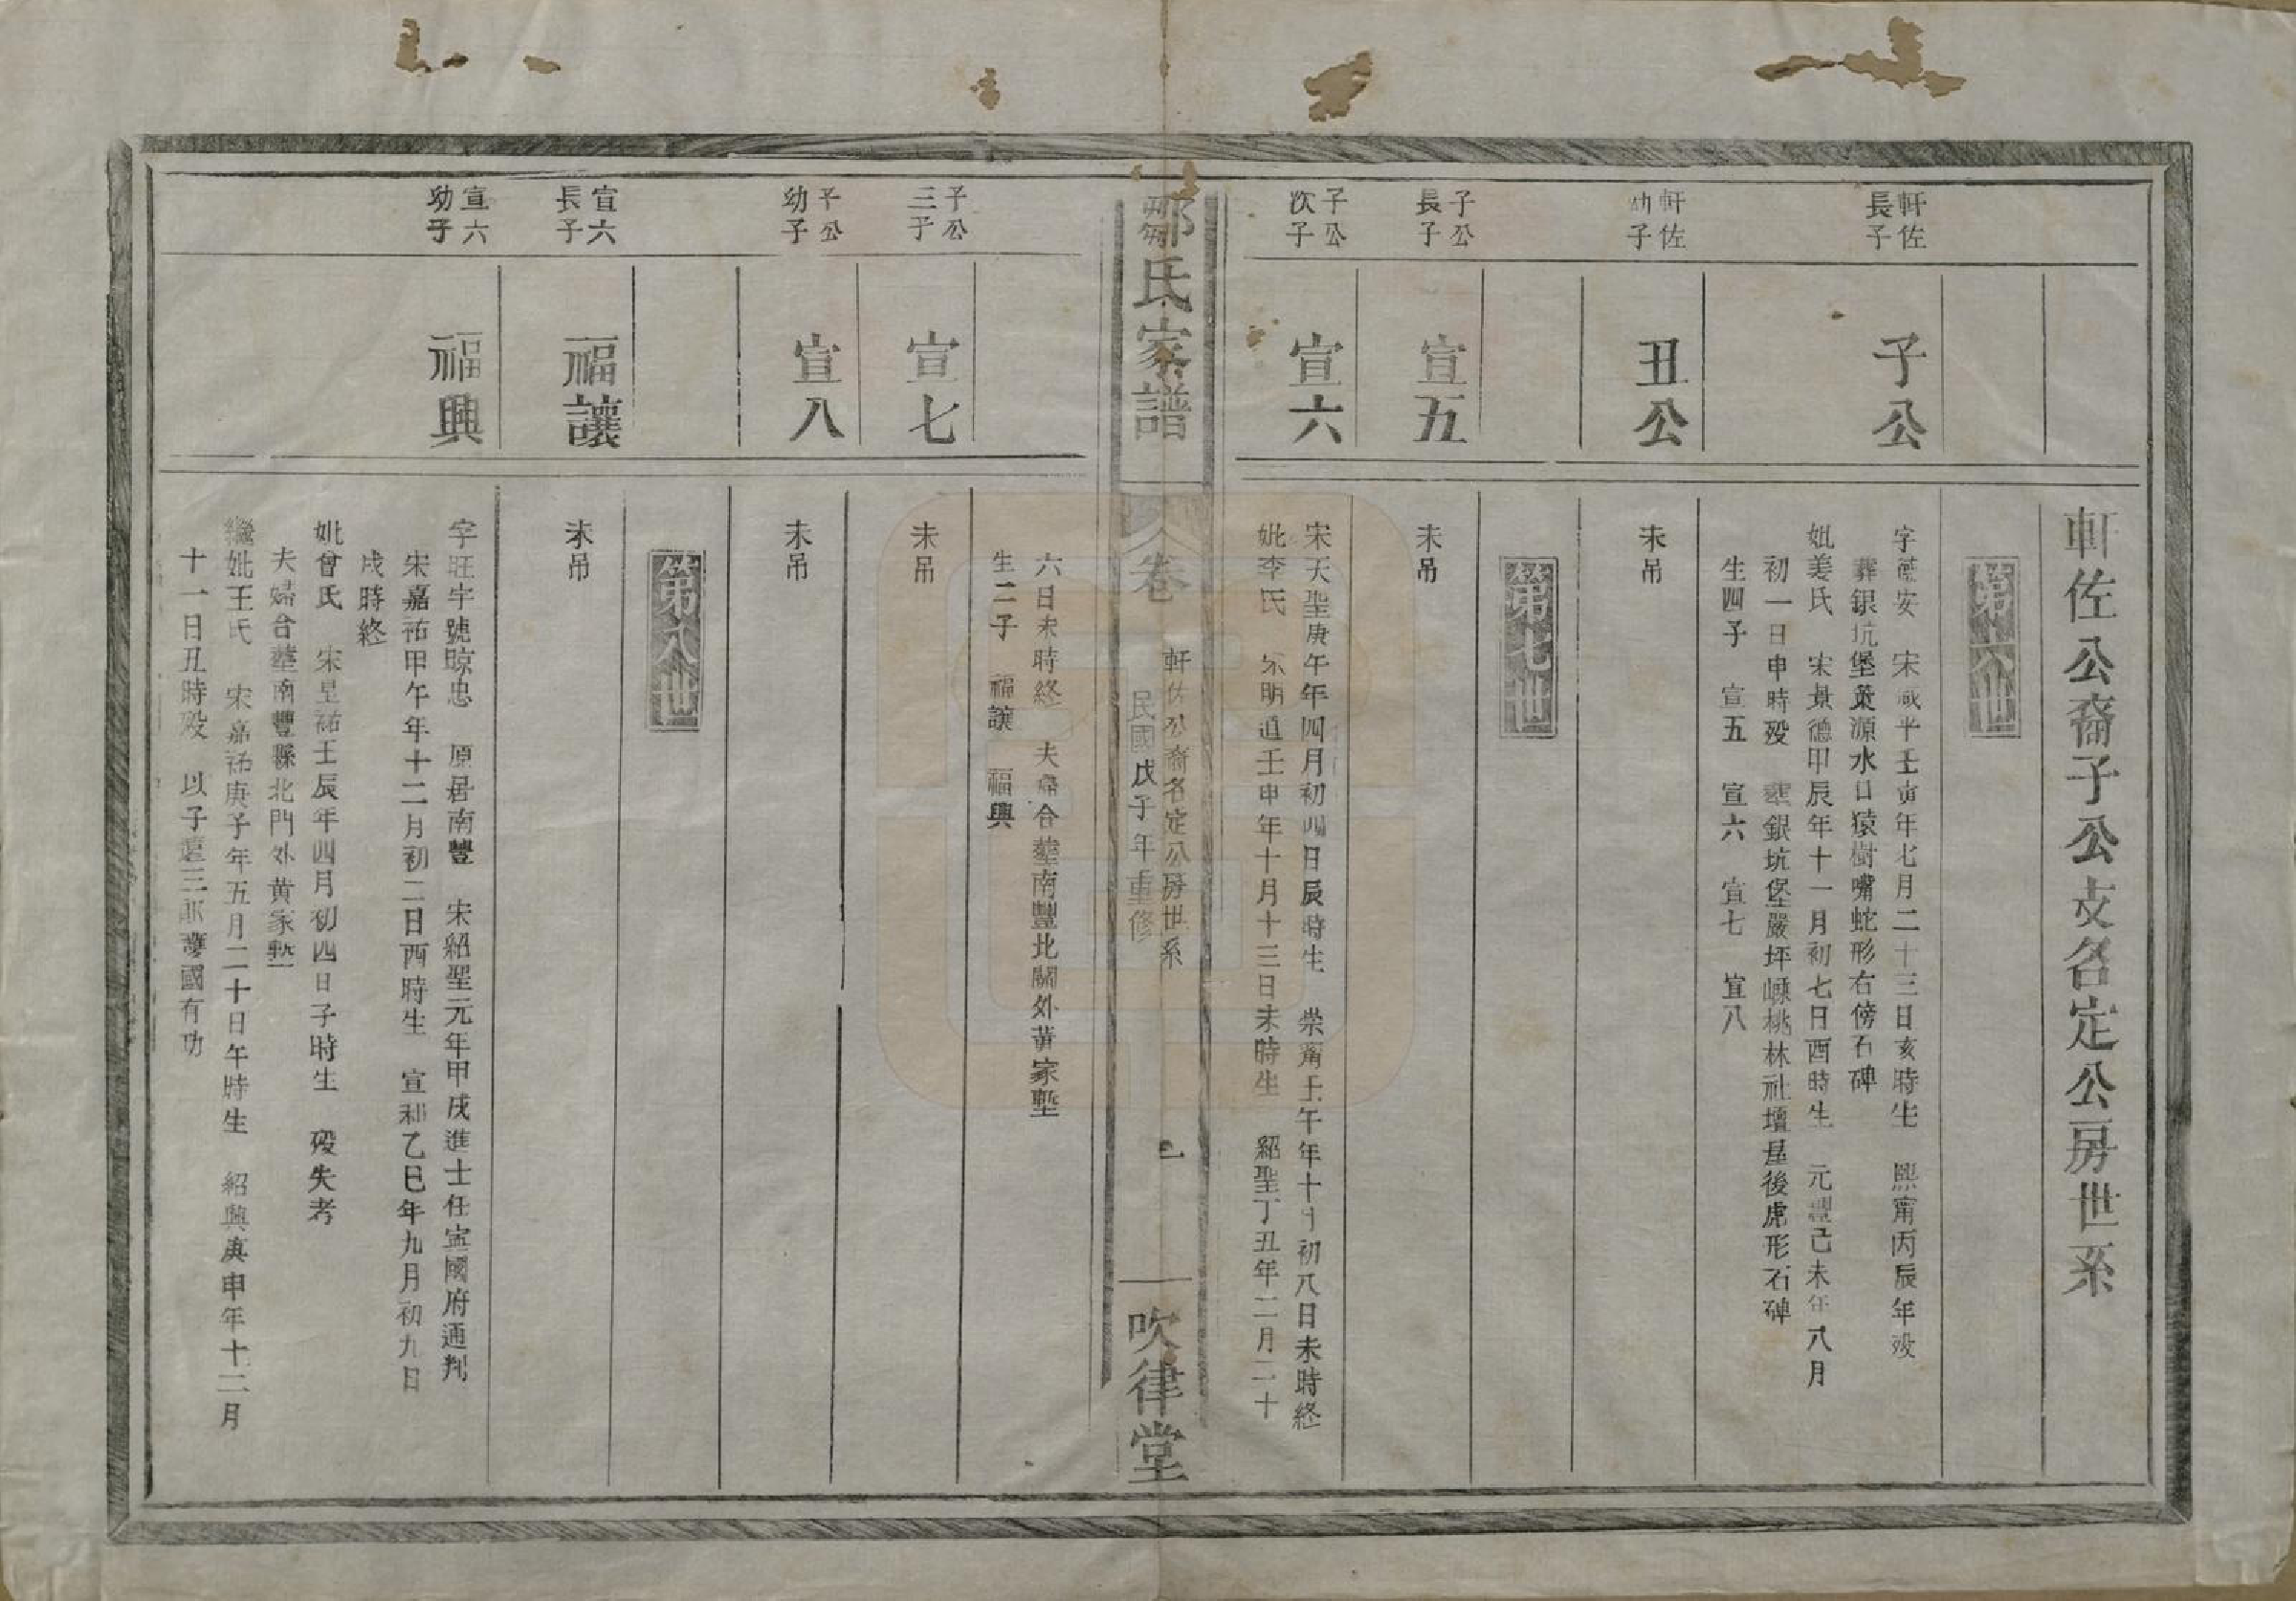 軒佐公裔子公支名定公房世系
第六世
軒佐長子
子公
字 安 宋咸平壬寅年七月二十三日亥時生 熙甯丙辰年歿
葬銀坑堡菉源水口猿樹嘴蛇形右傍石碑
妣姜氏 宋景德甲辰年十一月初七日酉時生 元豐己未年八月
初一日申時歿 塟銀坑堡嚴坪嵊桃林社壇星後虎形石碑
生四子 宣五 宣六 宣七 宣八
軒佐幼子
丑公
未吊
第七世
子公長子
宣五
未吊
子公次子
宣六
宋天聖庚午年四月初四日辰時生 崇甯壬午年十月初八日未時終
妣李氏 宋明道壬申年十月十三日未時生 紹聖丁丑年二月二十
鄒氏家譜
卷
軒佐公裔名定公房世系
民國戊子年重修
一
吹律堂
六日未時終 夫婦合塟南豐北關外黃家塹
生二子 福讓 福興
子公三子
宣七
未吊
子公幼子
宣八
未吊
第八世
宣六長子
福讓
未吊
宣六幼子
福興
字旺宇號晾忠 原居南豐 宋紹聖元年甲戌進士任寍國府通判
宋嘉祐甲午年十二月初二日酉時生 宣和乙巳年九月初九日
戌時終
妣曾氏 宋皇祐壬辰年四月初四日子時生 歿失考
夫婦合塟南豐縣北門外黃家塹
繼妣王氏 宋嘉祐庚子年五月二十日午時生 紹興庚申年十二月
十一日丑時歿 以子 三郎 國有功